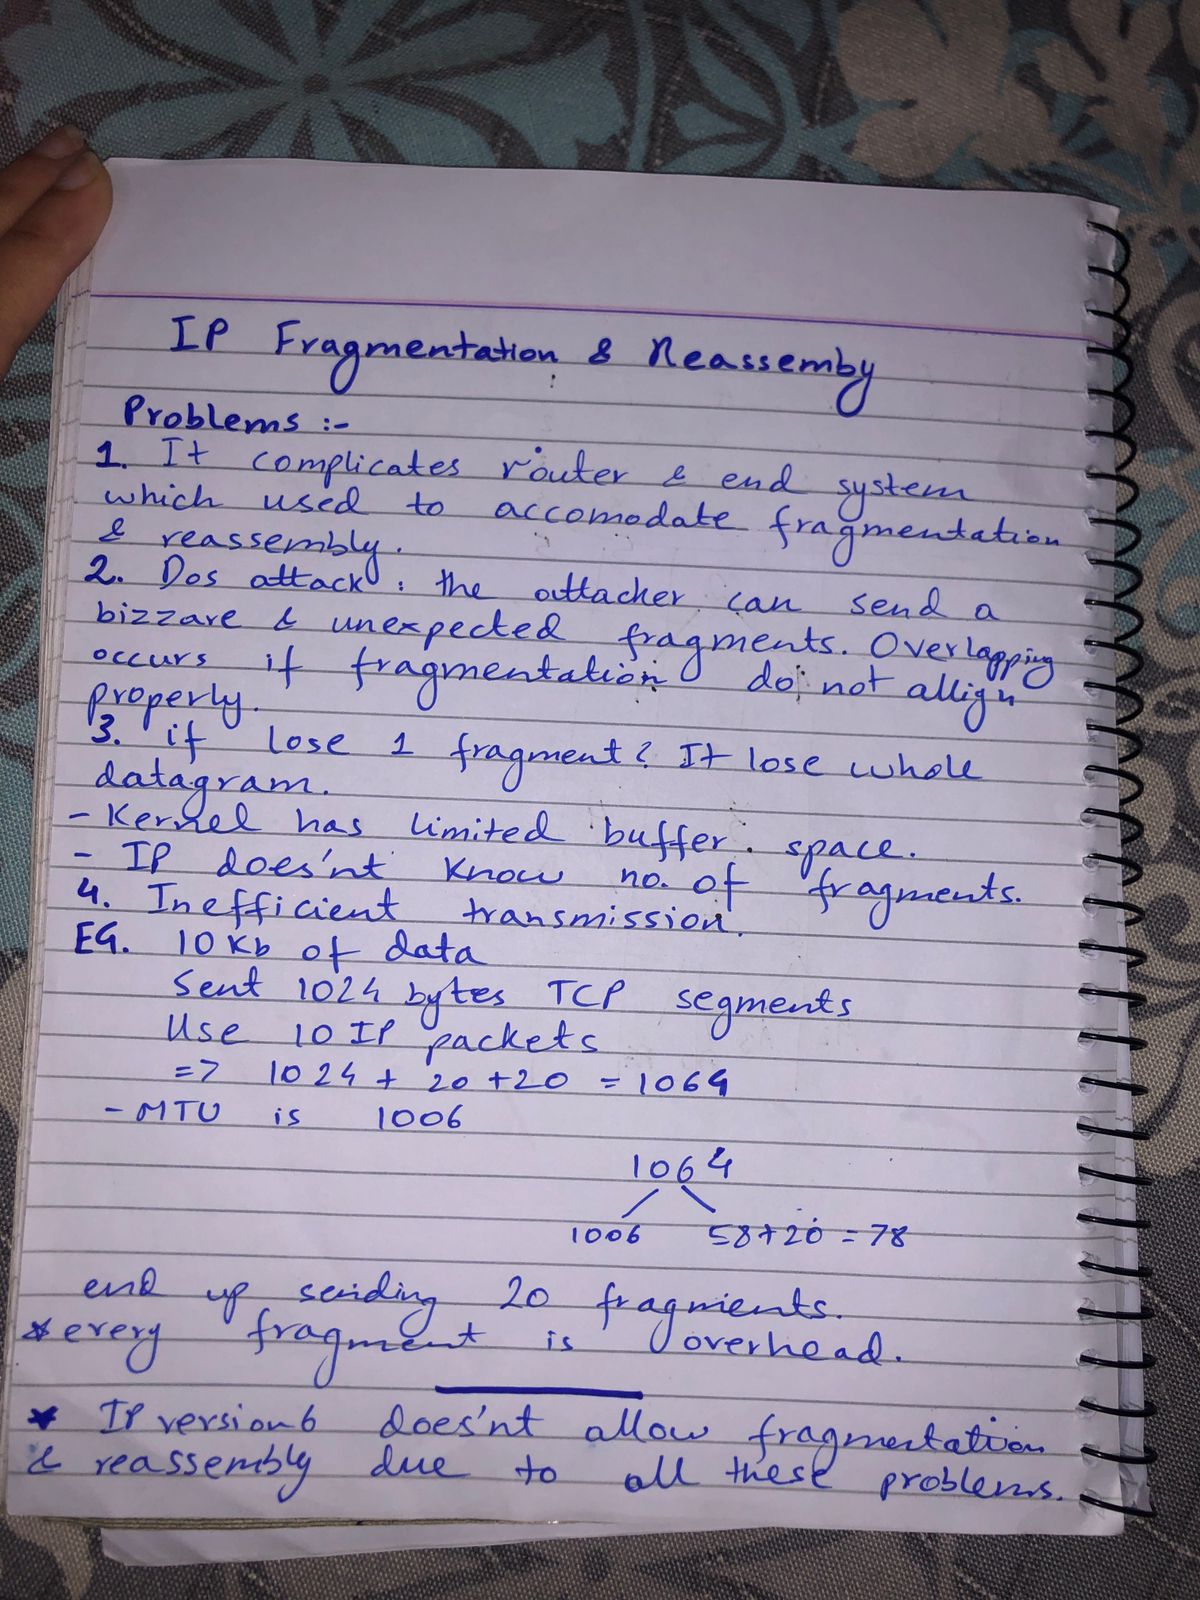 IP Fragmentation & Reassemby
Problems :-
1. It complicates router & end system
which used to accomodate fragmentation
& reassembly.
2. Dos attack : the attacker can send a
bizzare & unexpected fragments. Overlapping
occurs if fragmentation do not allign
properly.
3. if lose 1 fragment? It lose whole
datagram.
- Kernel has limited buffer. space.
- IP does'nt know no. of fragments.
4. Inefficient transmission.
EG. 10 Kb of data
Sent 1024 bytes TCP segments
Use 10 IP packets
=> 1024 + 20 +20 = 1064
- MTU is 1006
1064
1006 58+20 = 78
end up sending 20 fragments.
* every fragment is overhead.
* IP version 6 does'nt allow fragmentation
& reassembly due to all these problems.